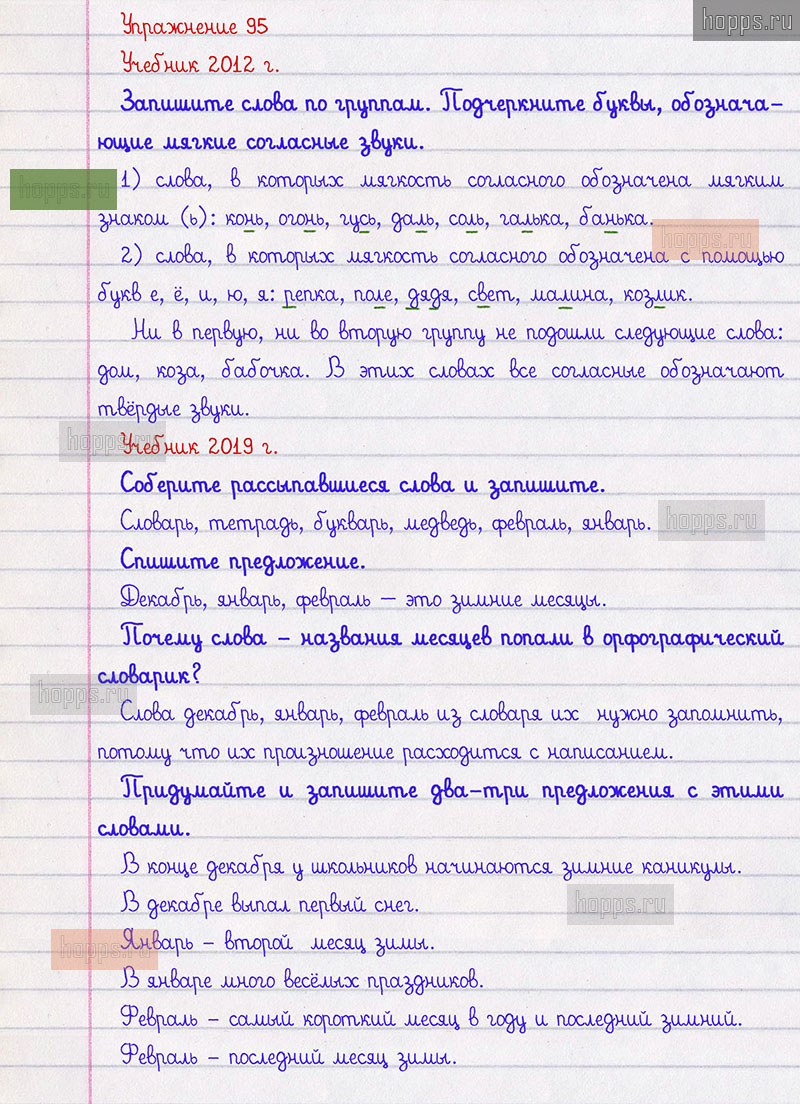 hopps.ru
Упражнение 95
Учебник 2012 г.
Запишите слова по группам. Подчеркните буквы, обознача-
ющие мягкие согласные звуки.
hopps.ru
1) слова, в которых мягкость согласного обозначена мягким
знаком (ь): конь, огонь, гусь, даль, соль, галька, банька.
hopps.ru
2) слова, в которых мягкость согласного обозначена с помощью
букв е, ё, и, ю, я: репка, поле, дядя, свет, малина, козлик.
Ни в первую, ни во вторую группу не подошли следующие слова:
дом, коза, бабочка. В этих словах все согласные обозначают
твёрдые звуки.
hopps.ru
Учебник 2019 г.
Соберите рассыпавшиеся слова и запишите.
Словарь, тетрадь, букварь, медведь, февраль, январь.
hopps.ru
Спишите предложение.
Декабрь, январь, февраль — это зимние месяцы.
Почему слова – названия месяцев попали в орфографический
словарик?
hopps.ru
Слова декабрь, январь, февраль из словаря их нужно запомнить,
потому что их произношение расходится с написанием.
Придумайте и запишите два-три предложения с этими
словами.
В конце декабря у школьников начинаются зимние каникулы.
В декабре выпал первый снег.
hopps.ru
Январь – второй месяц зимы.
hopps.ru
В январе много весёлых праздников.
Февраль – самый короткий месяц в году и последний зимний.
Февраль – последний месяц зимы.